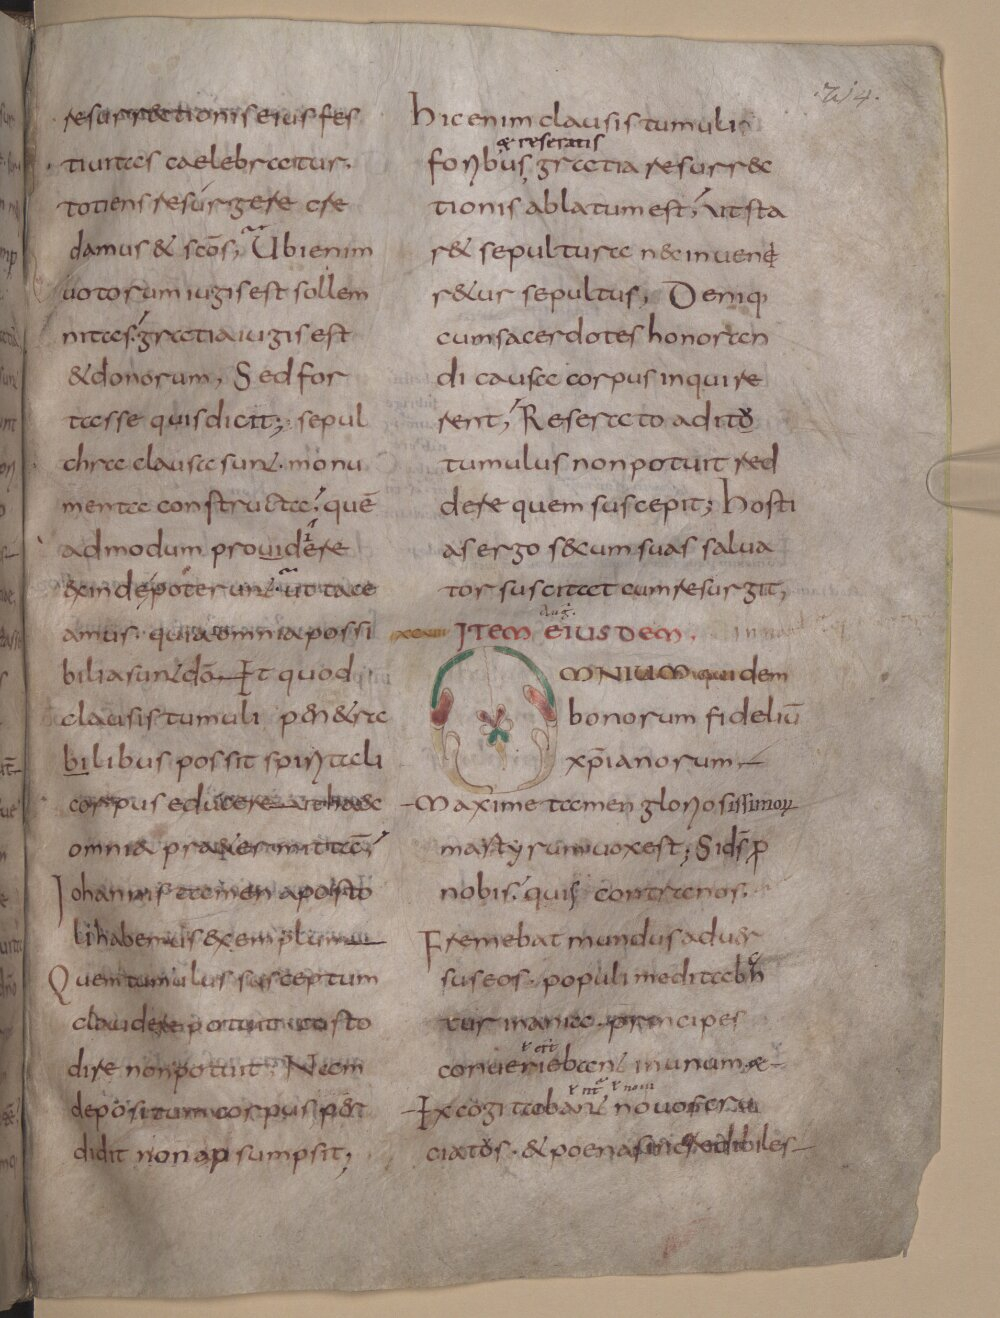 resurrectionis eius fes
tiuitas caelebratur.
totiens resurgere cre
damus & sc̄os; Ubi enim
uotorum iugis est sollem
nitas. gratia iugis est
& donorum, Sed for
tasse quis dicit; sepul
chra clausa sunt. monu
menta constructa. quē
admodum prouidere
exinde poterunt. ut tace
amus. quia omnia possi
bilia sunt dō Et quod
clausis tumuli pen&ra
bilibus possit spiritali
corpus educere
omnia
Iohannis tamen aposto
li habemus exemplum
Quem tumulus susceptum
claudere potuit custo
dire non potuit. Nam
depositum corpus per
didit non apsumpsit;
714.
hic enim clausis tumuli
& reseratis
foribus, gratia resurrec
tionis ablatum est, ut sta
r& sepultura nec inuen
r&ur sepultus, Deniq;
cum sacerdotes honoran
di causa corpus inquire
rent, Reserato aditu
tumulus non potuit red
dere quem suscepit; hosti
as ergo secum suas salua
tor suscitat cum resurgit;
Aug.
ITEM EIUSDEM.
OMNIUM quidem
bonorum fideliū
xp̄ianorum
maxime tamen gloriosissimorum
martyrum uox est; Si d̄s p̄
nobis. quis contra nos.
Fremebat mundus aduer
sus eos. populi meditaban
tur inania. principes
conueniebant in unum &
Excogitabant nouos cru
ciatus. & poenas incredibiles